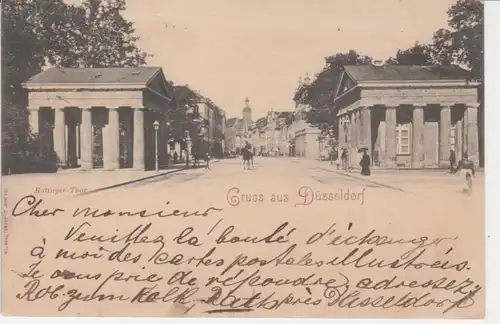 Ratinger Thor.
Gruss aus Düsseldorf
Cher monsieur,
Veuillez la bonté d'échanger
à moi des cartes postales illustrées.
Je vous prie de répondre, adressez
Rob. zum Kolk, Rath près Düsseldorf